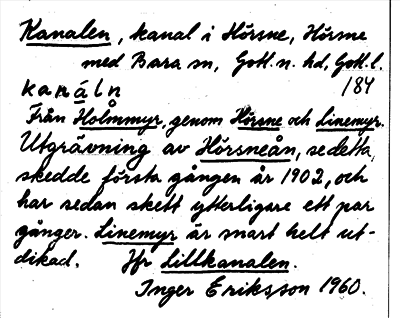 Kanalen, kanal i Hörsne, Hörsne
med Bara sn, Gotl. n. hd, Gotl. l.
184
kanáln
Från Holmmyr, genom Hörsne och Linemyr.
Utgrävning av Hörsneån, se detta,
skedde första gången år 1902, och
har sedan skett ytterligare ett par
gånger. Linemyr är snart helt ut-
dikad. Jfr Lillkanalen.
Inger Eriksson 1960.